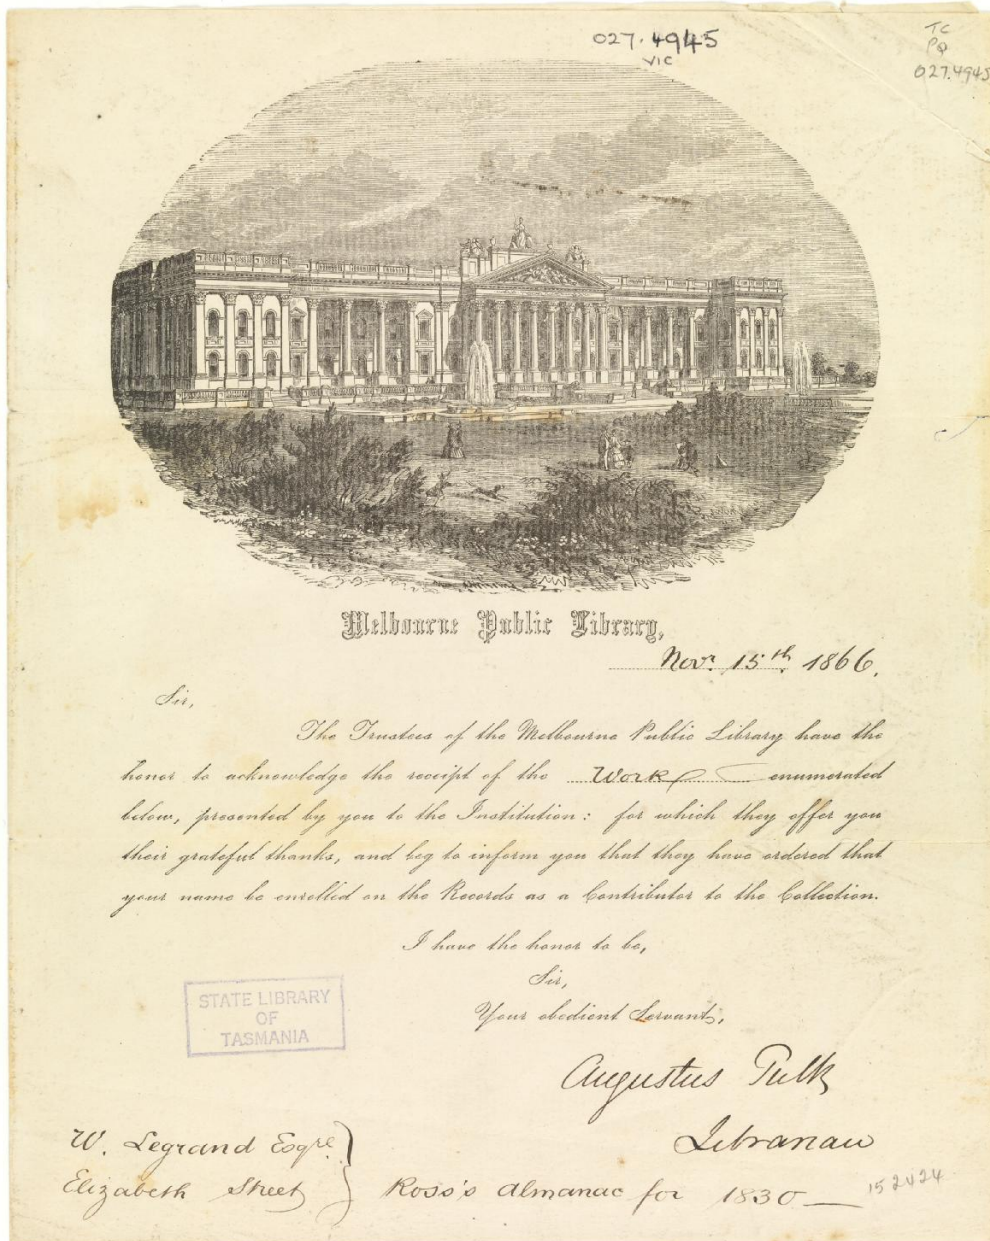 027.4945
VIC
TC
PQ
027.4945
Melbourne Public Library,
Novr. 15th 1866.
Sir,
The Trustees of the Melbourne Public Library have the
honor to acknowledge the receipt of the Work enumerated
below, presented by you to the Institution: for which they offer you
their grateful thanks, and beg to inform you that they have ordered that
your name be enrolled on the Records as a Contributor to the Collection.
I have the honor to be,
Sir,
Your obedient Servant,
STATE LIBRARY
OF
TASMANIA
Augustus Tulk
Librarian
W. Legrand Esqre.
Elizabeth Street
Ross's Almanac for 1830
152424